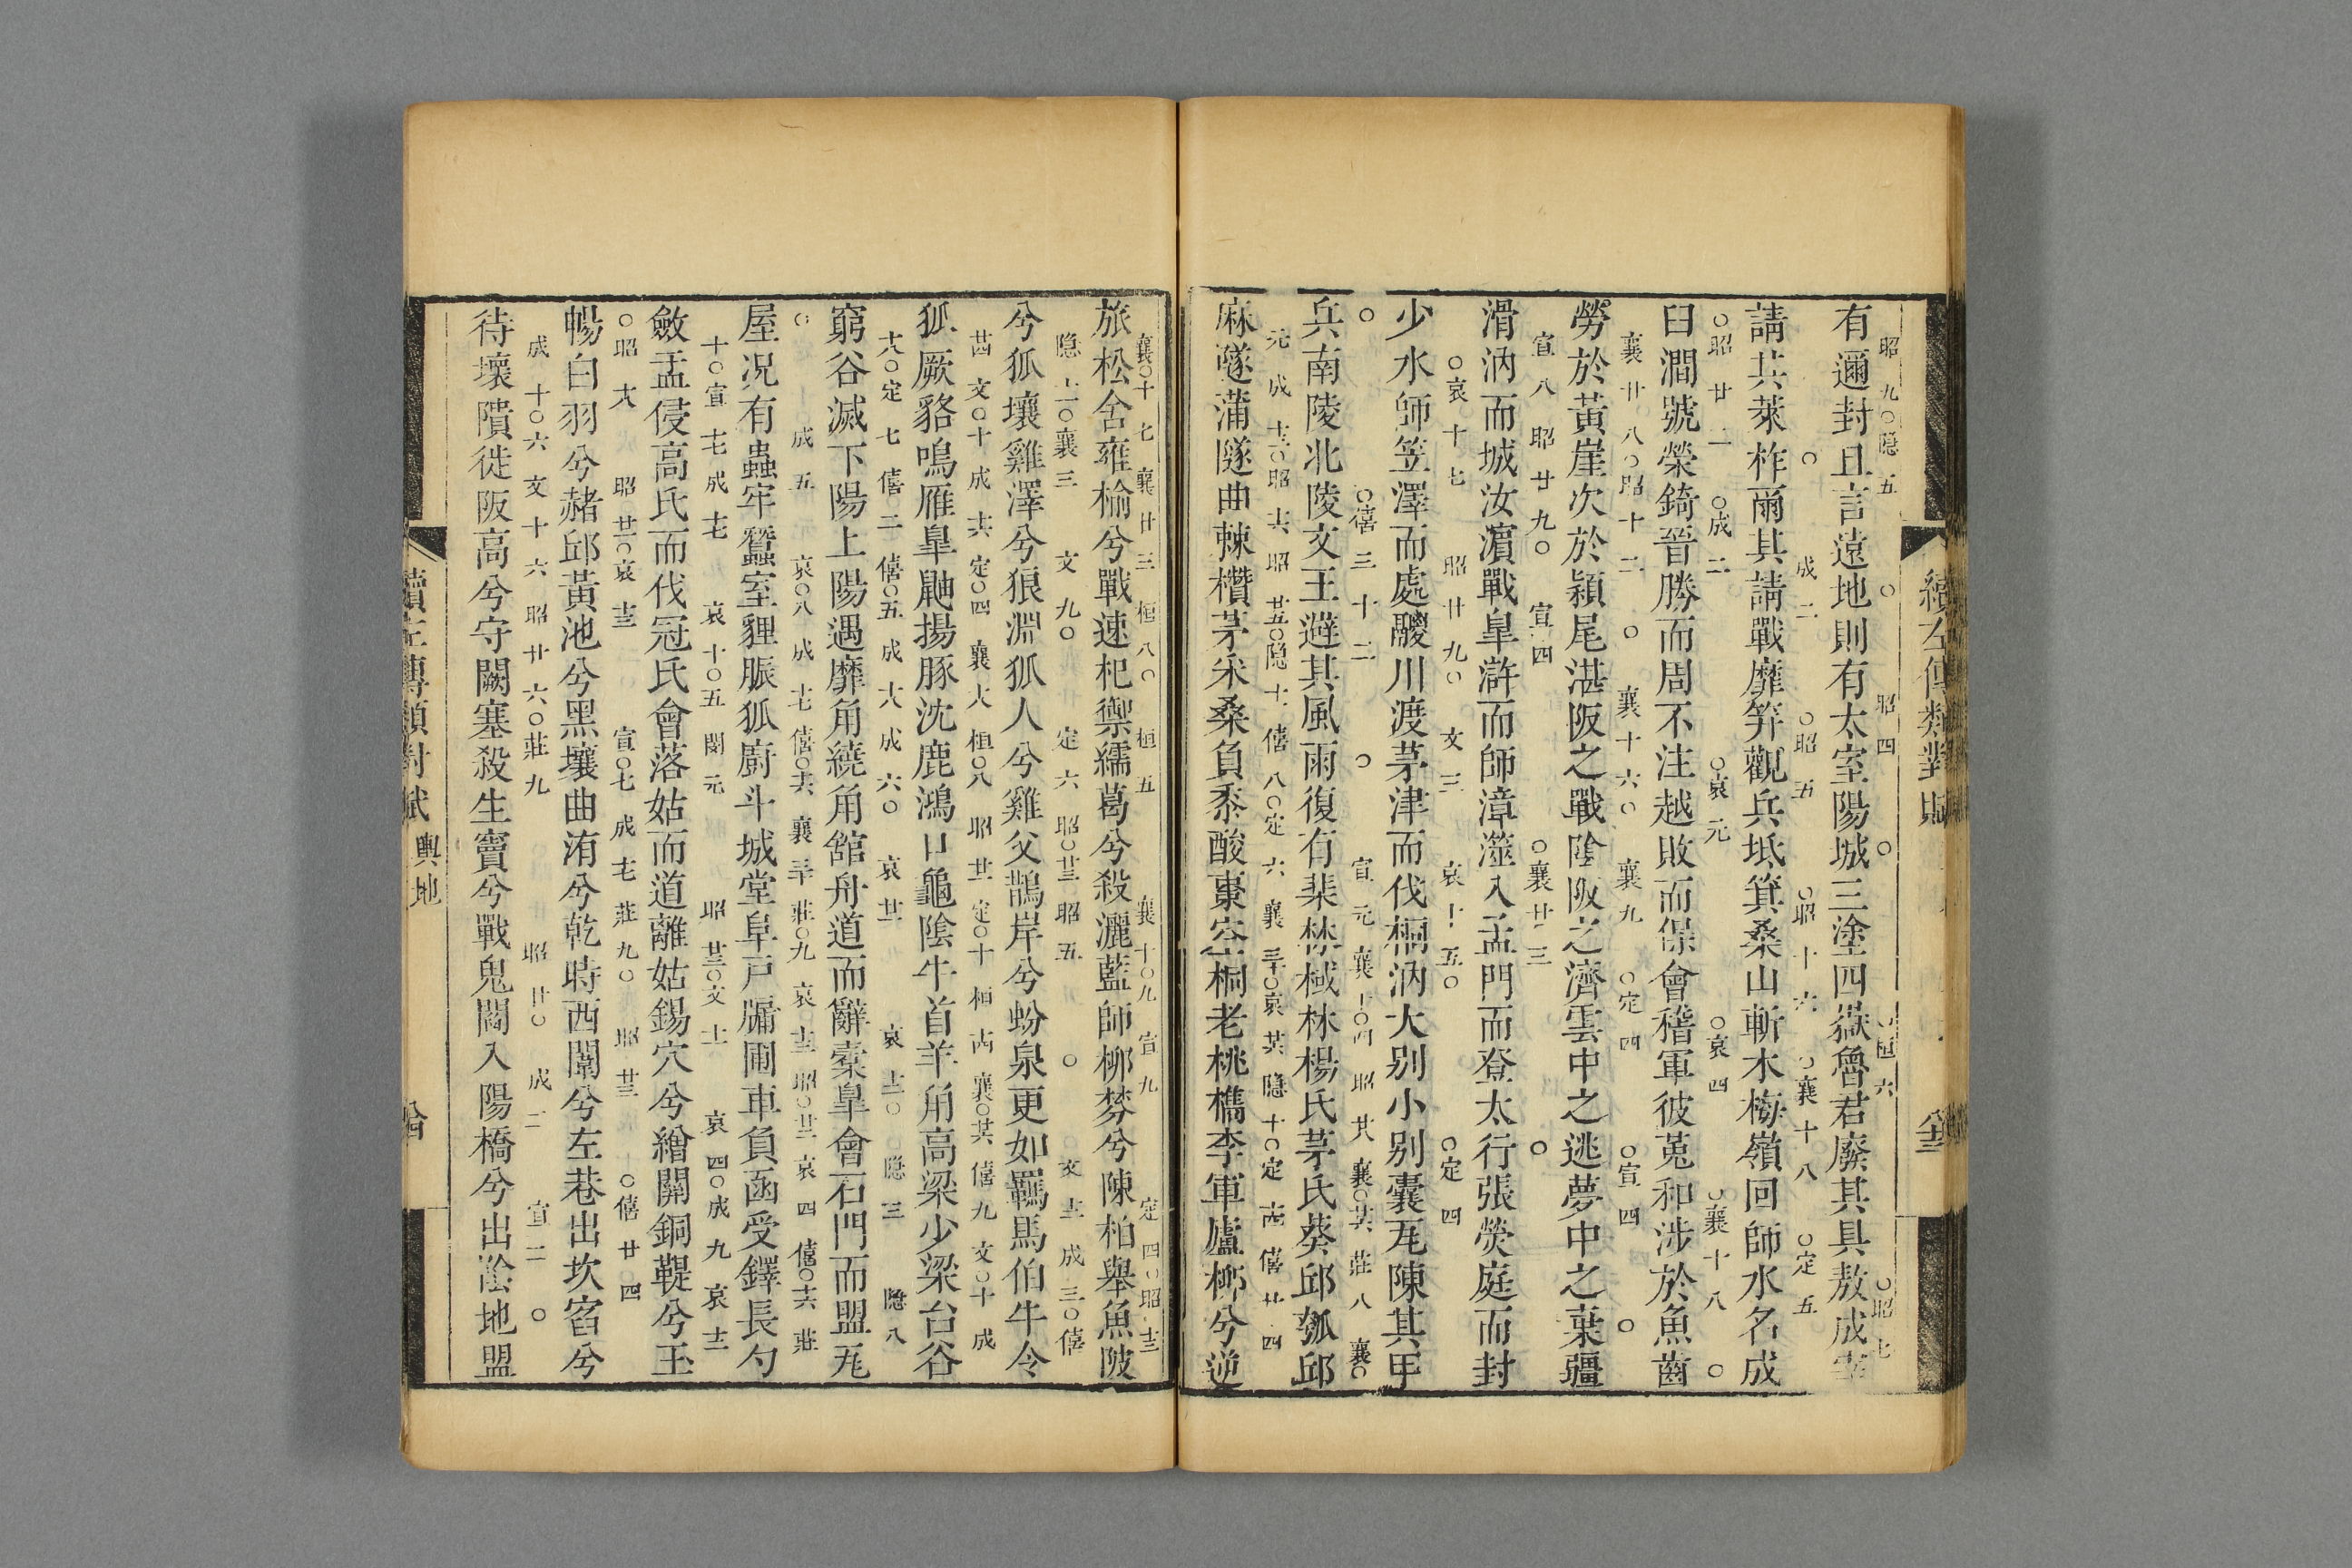 續左傳類對賦
昭九〇隱五〇昭四〇桓六〇昭七
有邇封且言遠地則有太室陽城三塗四嶽魯君廢其具敖成
〇成二〇昭五〇昭十六〇襄十八〇定五
請其萊柞爾其請戰靡笄觀兵坻箕桑山斬木梅嶺回師水名成
〇昭廿二〇成二〇哀元〇哀四〇襄十八〇
臼澗號滎錡晉勝而周不注越敗而保會稽軍彼菟和涉於魚齒
襄廿八〇昭十二〇襄十六〇襄九〇定四〇宣四〇
勞於黃崖次於潁尾湛阪之戰陰阪之濟雲中之逃夢中之棄疆
宣八昭廿九〇宣四〇襄廿三〇
滑汭而城汝濱戰皐滸而師漳澨入孟門而登太行張熒庭而封
〇哀十七昭廿九〇文三哀十五〇〇定四
少水師笠澤而處鬷川渡茅津而伐桐汭大别小别囊瓦陳其甲
〇〇僖三十二〇宣元襄十〇四昭廿八襄〇廿六莊八襄〇
兵南陵北陵文王避其風雨復有棐林棫林楊氏茅氏葵邱瓠邱
元成十三〇昭十六昭廿五〇隱十一僖八〇定六襄三十〇哀廿六隱十〇定十四僖廿四
麻隧蒲隧曲棘櫕茅采桑負黍酸棗空桐老桃檇李軍廬柳兮逆
襄〇十七襄廿三桓八〇桓五襄十〇九宣九定四〇昭十三
旅松舍雍榆兮戰速杞禦繻葛兮殺灑藍師柳棼兮陳柏舉魚陂
隱十一〇襄三文九〇定六昭〇廿三昭五〇文十三成三〇僖
兮狐壤雞澤兮狼淵狐人兮雞父鵲岸兮蚡泉更如羈馬伯牛令
廿四文〇十成十六定〇四襄十八桓〇八昭廿一定〇十桓十四襄〇廿六僖九文〇十成
狐厥貉鳴雁皐鼬揚豚沈鹿鴻口龜陰牛首羊角高梁少梁台谷
十八〇定七僖二僖〇五成十八成六〇哀廿一哀十二〇隱三隱八
窮谷滅下陽上陽遇靡角繞角舘舟道而辭橐皐會石門而盟瓦
〇成五哀〇八成十七僖〇十六襄三十莊〇九哀十三昭〇廿三哀四僖〇十六莊
屋况有蟲牢蠶室貍脤狐廚斗城堂阜戸牖圃車負函受鐸長勺
十〇宣十七成十七哀十〇五閔元昭廿三〇文十一哀四〇成九哀十三
斂盂侵高氏而伐冠氏會落姑而道離姑錫穴兮繒關銅鞮兮玉
〇昭十八昭廿〇哀十三宣〇七成十七莊九〇昭廿三〇僖廿四
暢白羽兮赭邱黃池兮黑壤曲洧兮乾時西闈兮左巷出坎窞兮
成十〇六文十六昭廿六〇莊九昭廿〇成二宣二〇
待壞隤徙阪高兮守闕塞殺生竇兮戰鬼閻入陽橋兮出陰地盟
續左傳類對賦輿地